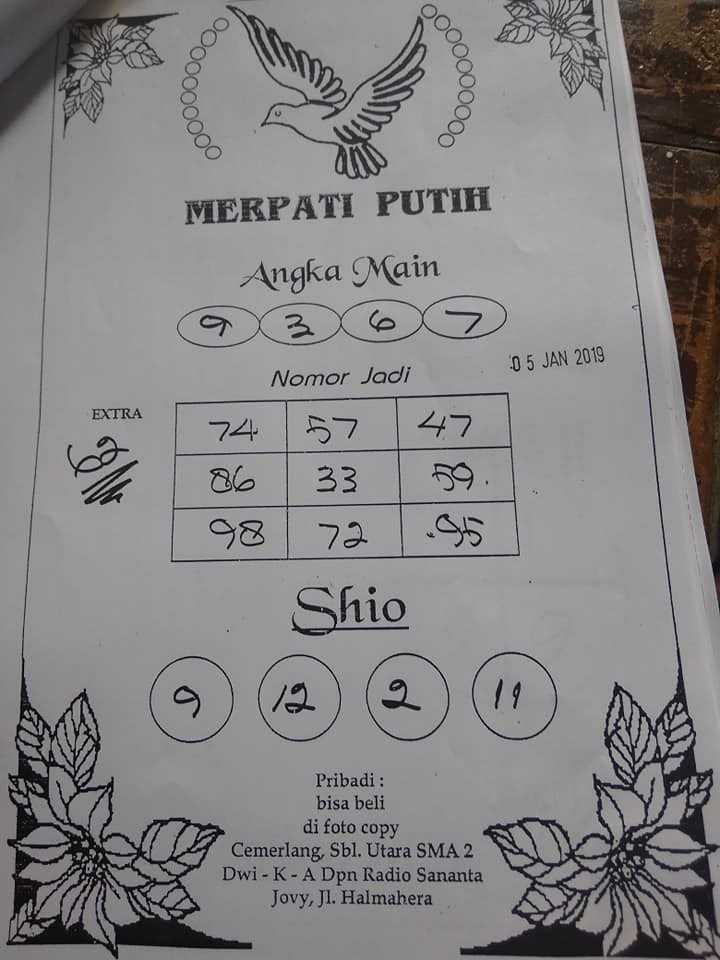 MERPATI PUTIH
Angka Main
9 3 6 7
05 JAN 2019
Nomor Jadi
EXTRA
62
74 57 47
86 33 59
98 72 95
Shio
9 12 2 11
Pribadi :
bisa beli
di foto copy
Cemerlang, Sbl. Utara SMA 2
Dwi - K - A Dpn Radio Sananta
Jovy, Jl. Halmahera